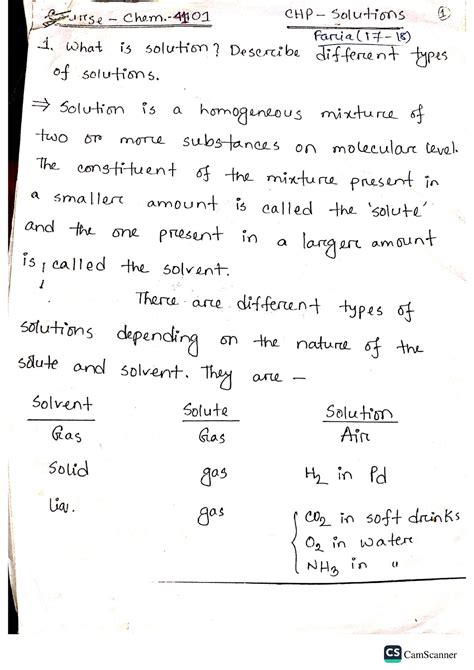 Course - Chem.-4101 CHP - Solutions 1
Faria (17-18)
1. What is solution? Describe different types
of solutions.
⇒ Solution is a homogeneous mixture of
two or more substances on molecular level.
The constituent of the mixture present in
a smaller amount is called the 'solute'
and the one present in a larger amount
is, called the solvent.
There are different types of
solutions depending on the nature of the
solute and solvent. They are —
Solvent Solute Solution
Gas Gas Air
Solid gas H2 in Pd
Liq. gas { CO2 in soft drinks
O2 in water
NH3 in "
CS CamScanner